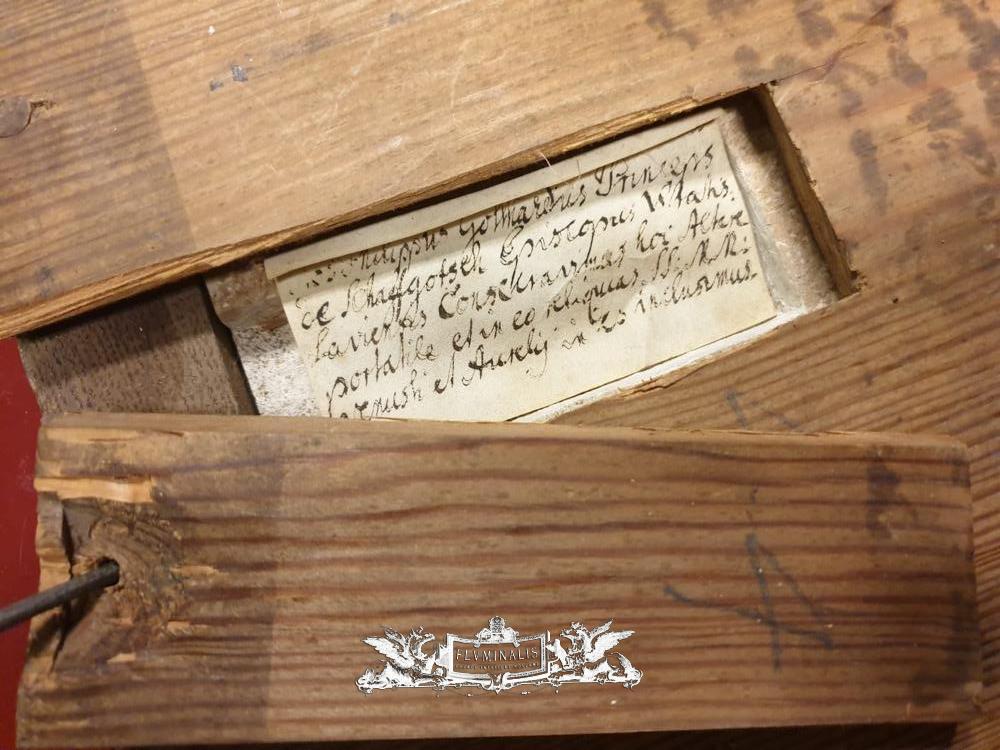 Philippus Gothardus Princeps
de Schaffgotsch Episcopus Wratis
laviensis Consekravimus hoc Altare
portatile et in eo reliquias SS: M.M:
et Aurelij in eo inclusimus.
FLVMINALIS